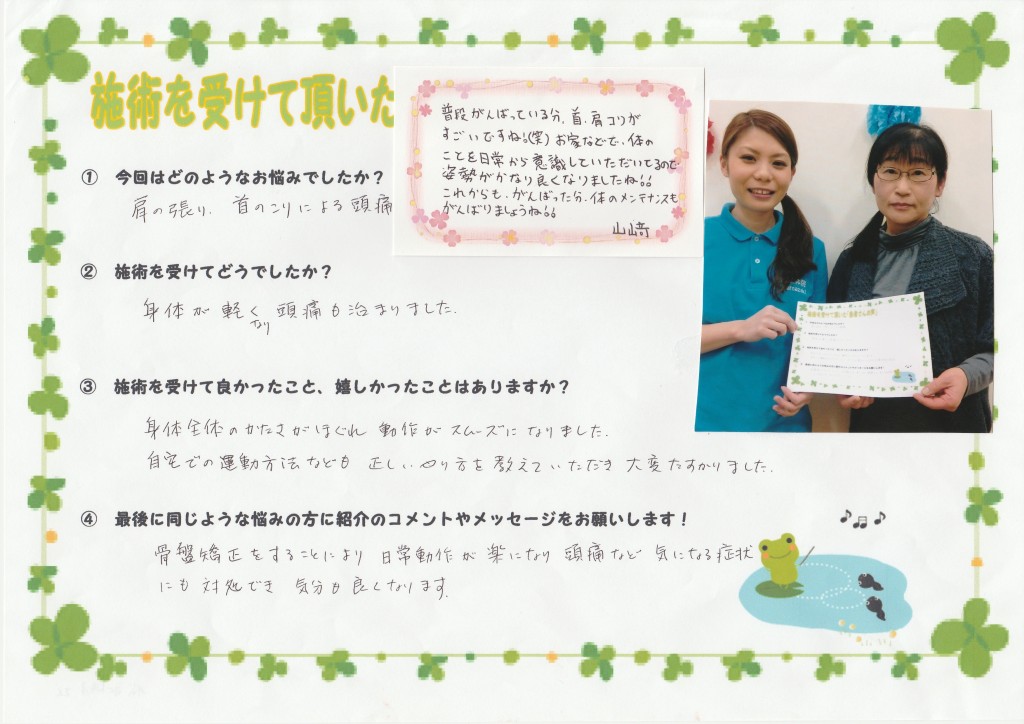 施術を受けて頂いた
普段がんばっている分、首、肩コリが
すごいですね!(笑) お家などで、体の
ことを日常から意識していただいてるので
姿勢がかなり良くなりましたね!!
これからも、がんばった分、体のメンテナンスも
がんばりましょうね!!
山﨑
① 今回はどのようなお悩みでしたか?
肩の張り、首のこりによる頭痛
② 施術を受けてどうでしたか?
身体が軽くなり 頭痛も治まりました.
③ 施術を受けて良かったこと、嬉しかったことはありますか?
身体全体のかたさがほぐれ 動作がスムーズになりました.
自宅での運動方法なども 正しいやり方を教えていただき 大変たすかりました.
④ 最後に同じような悩みの方に紹介のコメントやメッセージをお願いします!
骨盤矯正をすることにより 日常動作が楽になり 頭痛など 気になる症状
にも対処でき 気分も良くなります.